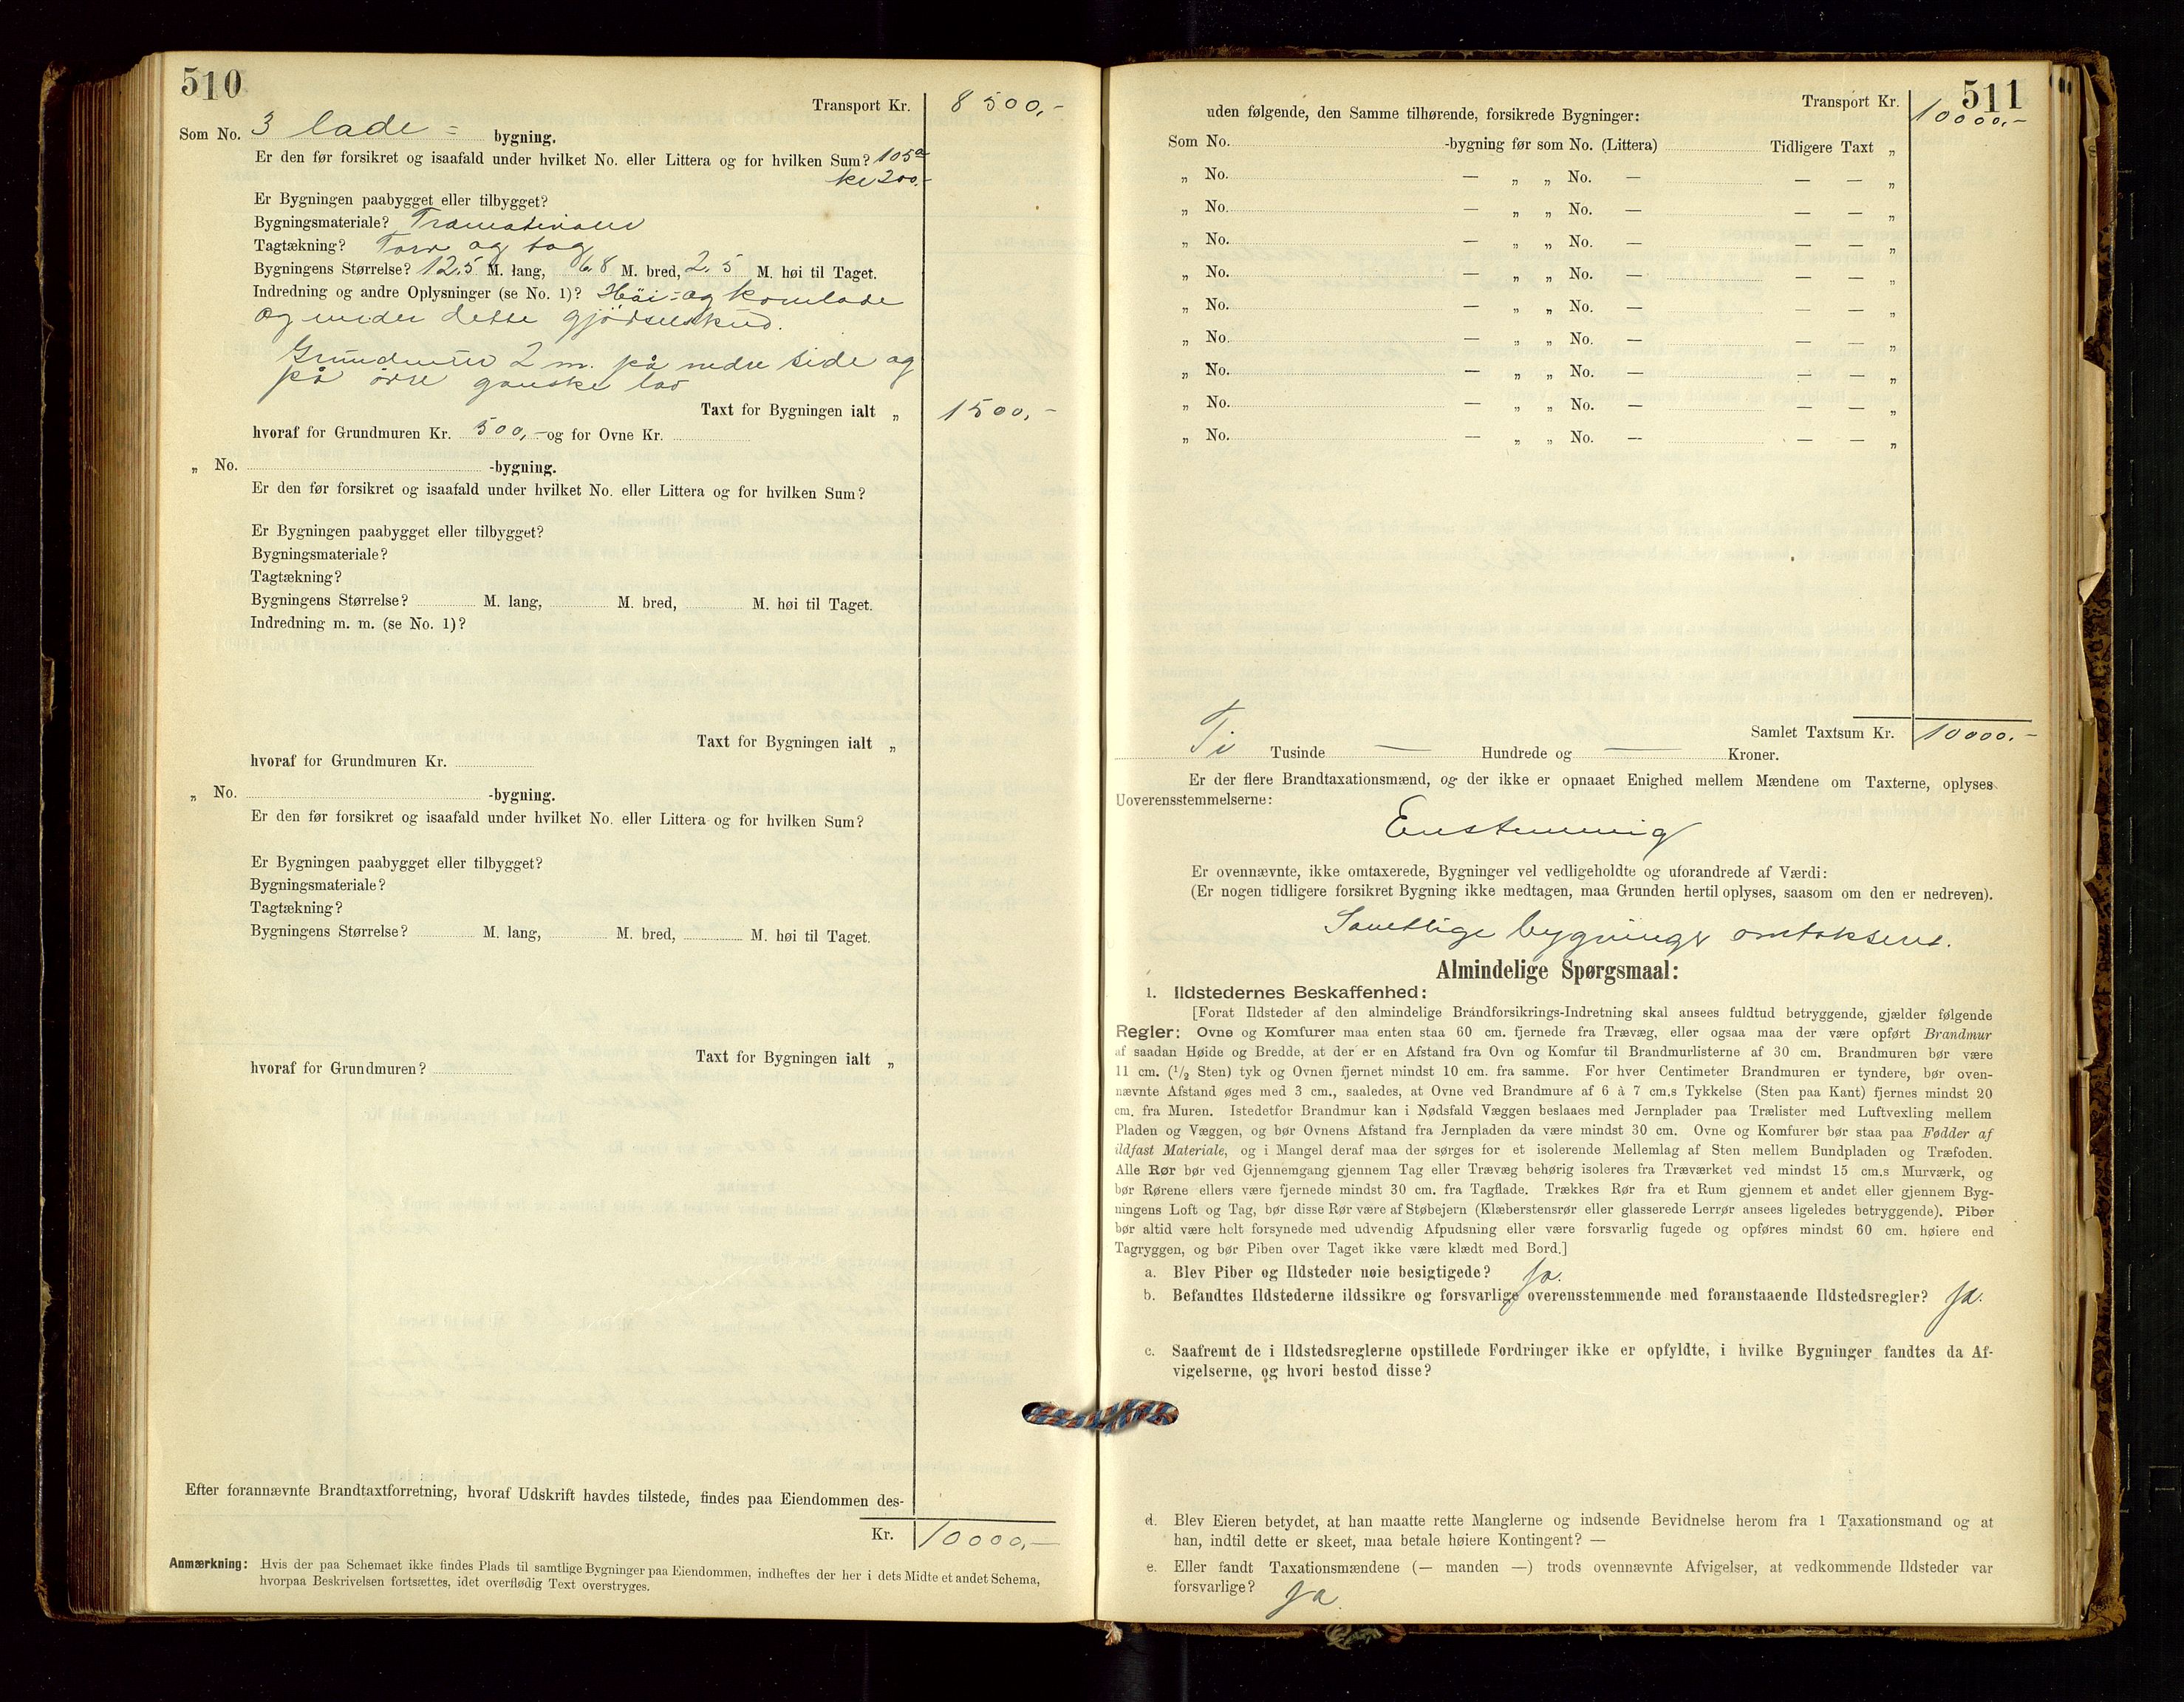 510
Transport Kr. 8500,-
Som No. 3 lade- bygning.
Er den før forsikret og isaafald under hvilket No. eller Littera og for hvilken Sum? 105a
kr 200.-
Er Bygningen paabygget eller tilbygget?
Bygningsmateriale? Træmaterialer
Tagtækning? Torv og tag
Bygningens Størrelse? 12.5 M. lang, 6.8 M. bred, 2.5 M. høi til Taget.
Indredning og andre Oplysninger (se No. 1)? Höi- og kornlade
og under dette gjödselskud.
Grundmur 2 m. på nedre side og
på övre ganske lav
Taxt for Bygningen ialt „ 1500,-
hvoraf for Grundmuren Kr. 500,- og for Ovne Kr.
„ No. -bygning.
Er den før forsikret og isaafald under hvilket No. eller Littera og for hvilken Sum?
Er Bygningen paabygget eller tilbygget?
Bygningsmateriale?
Tagtækning?
Bygningens Størrelse? M. lang, M. bred, M. høi til Taget.
Indredning m. m. (se No. 1)?
Taxt for Bygningen ialt „
hvoraf for Grundmuren Kr.
„ No. -bygning.
Er den før forsikret og isaafald under hvilket No. eller Littera og for hvilken Sum?
Er Bygningen paabygget eller tilbygget?
Bygningsmateriale?
Tagtækning?
Bygningens Størrelse? M. lang, M. bred, M. høi til Taget.
Taxt for Bygningen ialt „
hvoraf for Grundmuren?
Efter forannævnte Brandtaxtforretning, hvoraf Udskrift havdes tilstede, findes paa Eiendommen des-
Kr. 10000,-
Anmærkning: Hvis der paa Schemaet ikke findes Plads til samtlige Bygninger paa Eiendommen, indheftes der her i dets Midte et andet Schema,
hvorpaa Beskrivelsen fortsættes, idet overflødig Text overstryges.
511
Transport Kr. 10000,-
uden følgende, den Samme tilhørende, forsikrede Bygninger:
Som No. -bygning før som No. (Littera) Tidligere Taxt „
„ No. — „ „ No. — — — „
„ No. — „ „ No. — — — „
„ No. — „ „ No. — — — „
„ No. — „ „ No. — — — „
„ No. — „ „ No. — — — „
„ No. — „ „ No. — — — „
„ No. — „ „ No. — — — „
„ No. — „ „ No. — — — „
„ No. — „ „ No. — — — „
Samlet Taxtsum Kr. 10000.-
Ti Tusinde — Hundrede og — Kroner.
Er der flere Brandtaxationsmænd, og der ikke er opnaaet Enighed mellem Mændene om Taxterne, oplyses
Uoverensstemmelserne:
Enstemmig
Er ovennævnte, ikke omtaxerede, Bygninger vel vedligeholdte og uforandrede af Værdi:
(Er nogen tidligere forsikret Bygning ikke medtagen, maa Grunden hertil oplyses, saasom om den er nedreven).
Samtlige bygninger omtakseret.
Almindelige Spørgsmaal:
1. Ildstedernes Beskaffenhed:
[Forat Ildsteder af den almindelige Brandforsikrings-Indretning skal ansees fuldtud betryggende, gjælder følgende
Regler: Ovne og Komfurer maa enten staa 60 cm. fjernede fra Trævæg, eller ogsaa maa der være opført Brandmur
af saadan Høide og Bredde, at der er en Afstand fra Ovn og Komfur til Brandmurlisterne af 30 cm. Brandmuren bør være
11 cm. (1/2 Sten) tyk og Ovnen fjernet mindst 10 cm. fra samme. For hver Centimeter Brandmuren er tyndere, bør oven-
nævnte Afstand øges med 3 cm., saaledes, at Ovne ved Brandmure af 6 à 7 cm.s Tykkelse (Sten paa Kant) fjernes mindst 20
cm. fra Muren. Istedetfor Brandmur kan i Nødsfald Væggen beslaaes med Jernplader paa Trælister med Luftvexling mellem
Pladen og Væggen, og bør Ovnens Afstand fra Jernpladen da være mindst 30 cm. Ovne og Komfurer bør staa paa Fødder af
ildfast Materiale, og i Mangel deraf maa der sørges for et isolerende Mellemlag af Sten mellem Bundpladen og Træfoden.
Alle Rør bør ved Gjennemgang gjennem Tag eller Trævæg behørig isoleres fra Træværket ved mindst 15 cm.s Murværk, og
bør Rørene ellers være fjernede mindst 30 cm. fra Tagflade. Trækkes Rør fra et Rum gjennem et andet eller gjennem Byg-
ningens Loft og Tag, bør disse Rør være af Støbejern (Klæberstensrør eller glasserede Lerrør ansees ligeledes betryggende). Piber
bør altid være helt forsynede med udvendig Afpudsning eller være forsvarlig fugede og opføres mindst 60 cm. høiere end
Tagryggen, og bør Piben over Taget ikke være klædt med Bord.]
a. Blev Piber og Ildsteder nøie besigtigede? Ja.
b. Befandtes Ildstederne ildssikre og forsvarlige overensstemmende med foranstaaende Ildstedsregler? Ja.
c. Saafremt de i Ildstedsreglerne opstillede Fordringer ikke er opfyldte, i hvilke Bygninger fandtes da Af-
vigelserne, og hvori bestod disse?
d. Blev Eieren betydet, at han maatte rette Manglerne og indsende Bevidnelse herom fra 1 Taxationsmand og at
han, indtil dette er skeet, maa betale høiere Kontingent? —
e. Eller fandt Taxationsmændene (— manden —) trods ovennævnte Afvigelser, at vedkommende Ildsteder var
forsvarlige? Ja.